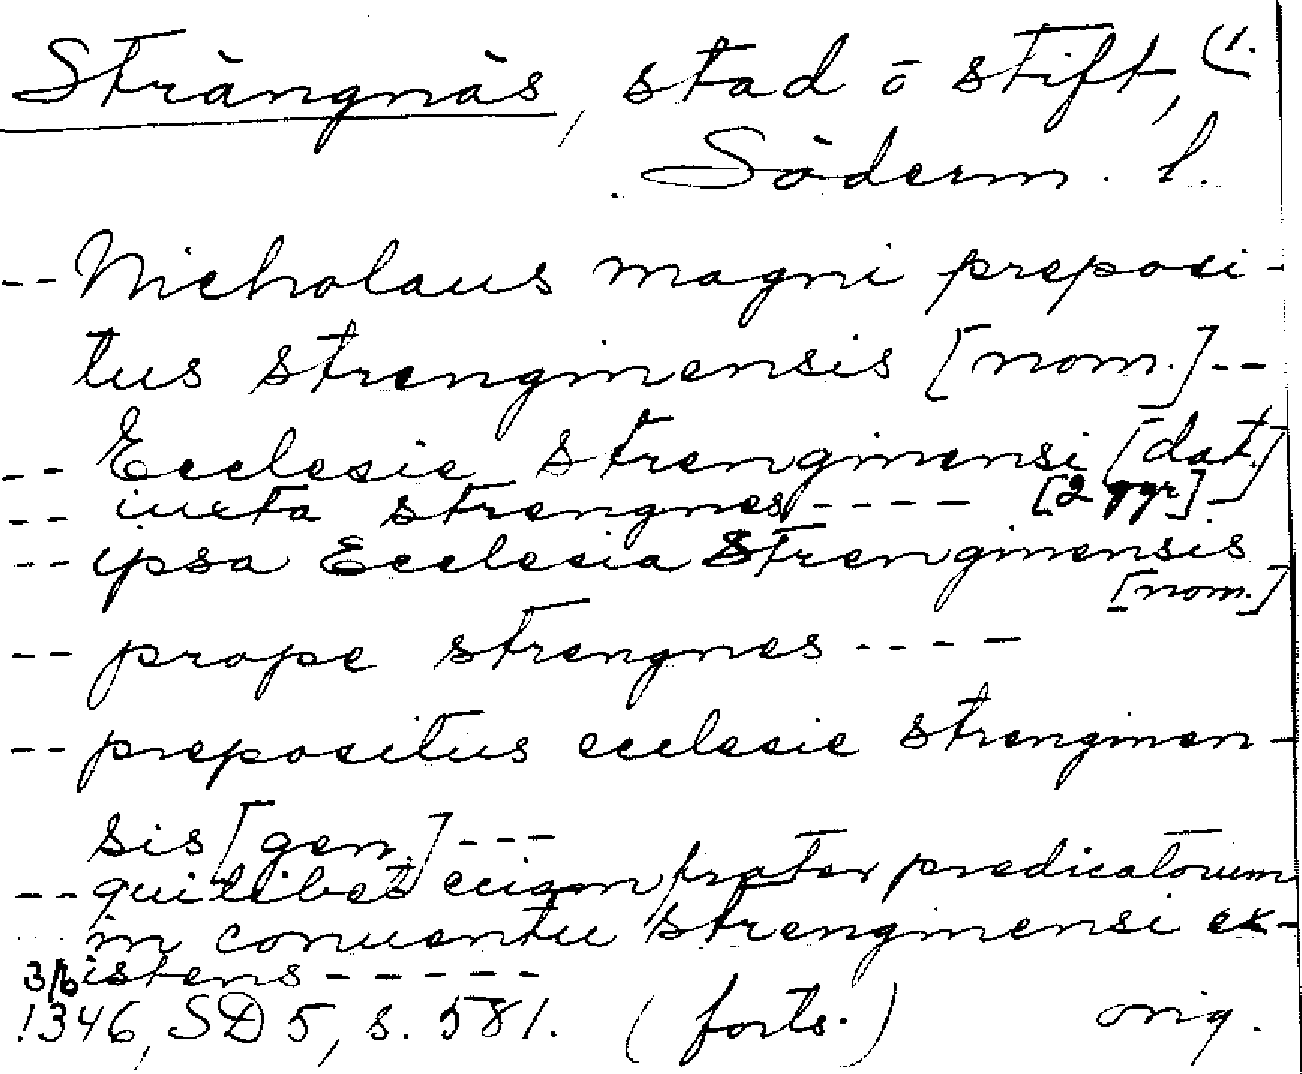 Strängnäs, stad o stift, (1.
Söderm. l.
-- Nicholaus magni preposi-
tus strenginensis [nom.] --
-- Ecclesie strenginensi [dat.]
-- iuxta strengnes ---- [2 ggr] -
-- ipsa Ecclesia Strenginensis
[nom.]
-- prope strengnes ----
-- prepositus ecclesie strenginen-
sis [gen.] ---
-- quilibet eciam frater predicatorum
in conuentu strenginensi ex-
istens -----
3/6
1346, SD 5, s. 581. (forts.) orig.